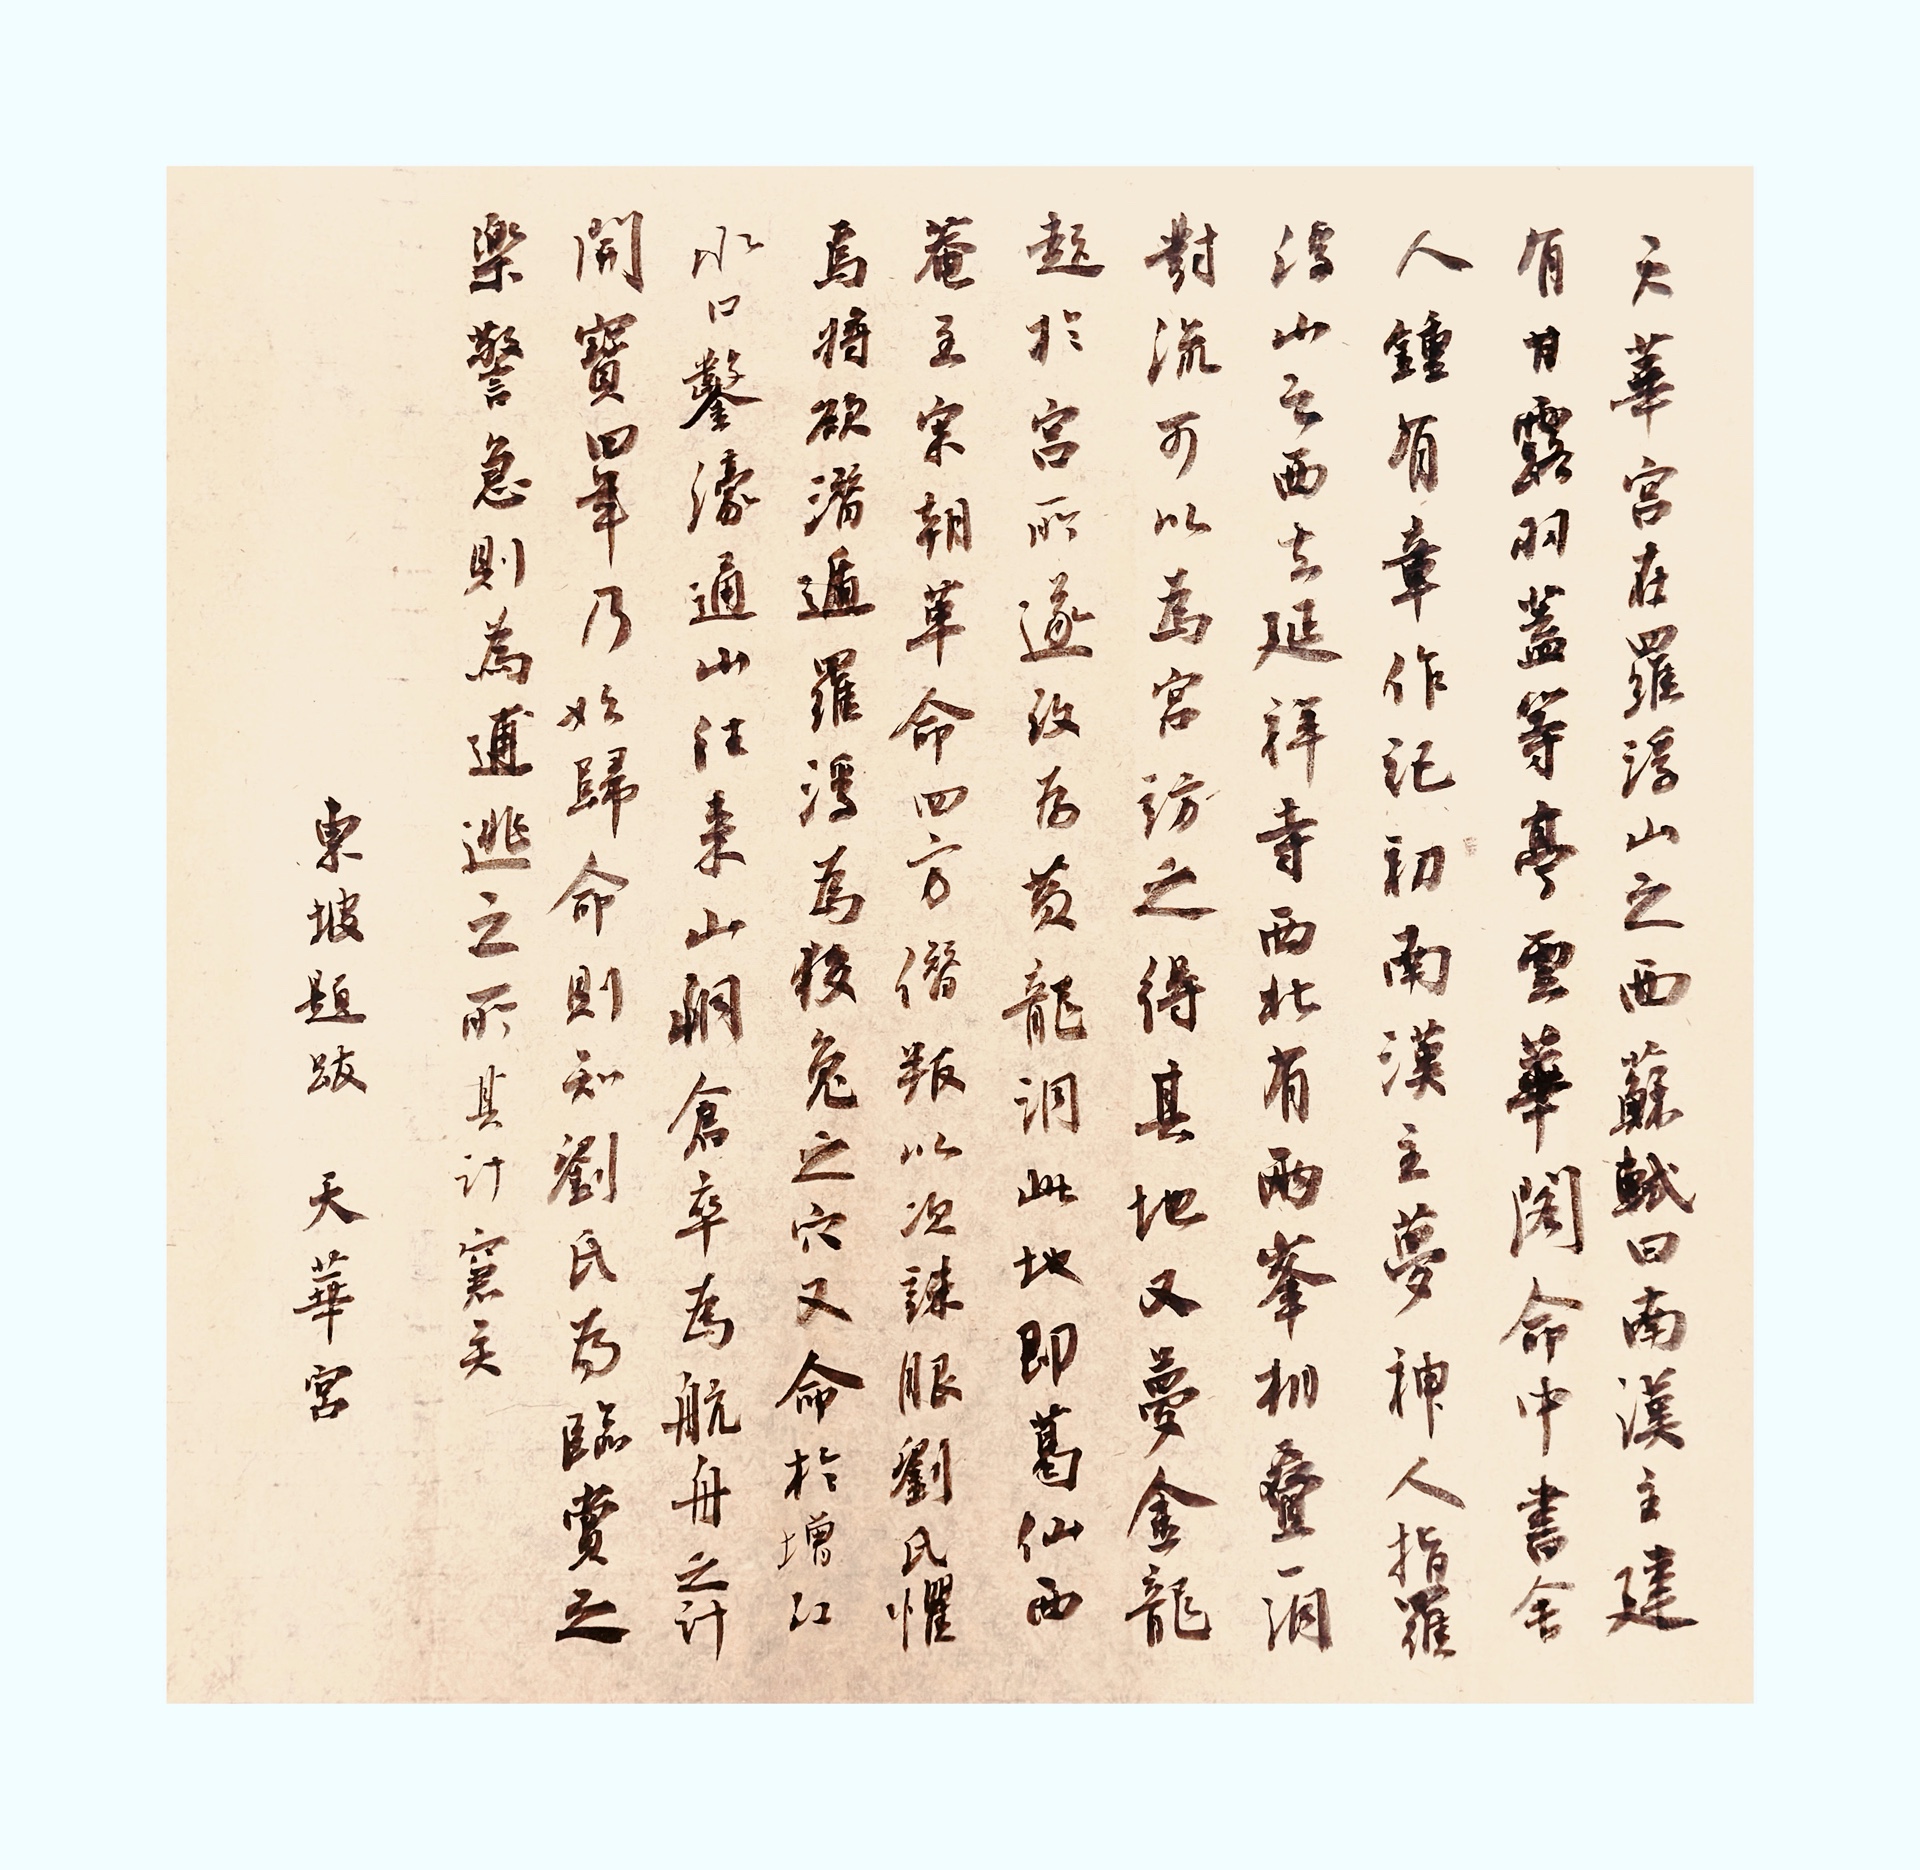 天華宮在羅浮山之西蘇軾曰南漢主建
有甘露羽蓋等亭雲華閣命中書舍
人鍾有章作記初南漢主夢神人指羅
浮山之西去延祥寺西北有兩峯相疊一洞
對流可以為宮訪之得其地又夢金龍
起於宮所遂改為黃龍洞此地即葛仙西
菴至宋朝革命四方僭叛以次誅服劉氏懼
焉將欲潛遁羅浮為狡兔之穴又命於增江
水口鑿濠通山往來山洞倉卒為航舟之計
開寶四年乃始歸命則知劉氏為臨賞之
樂警急則為逋逃之所其計窘矣
東坡題跋 天華宮